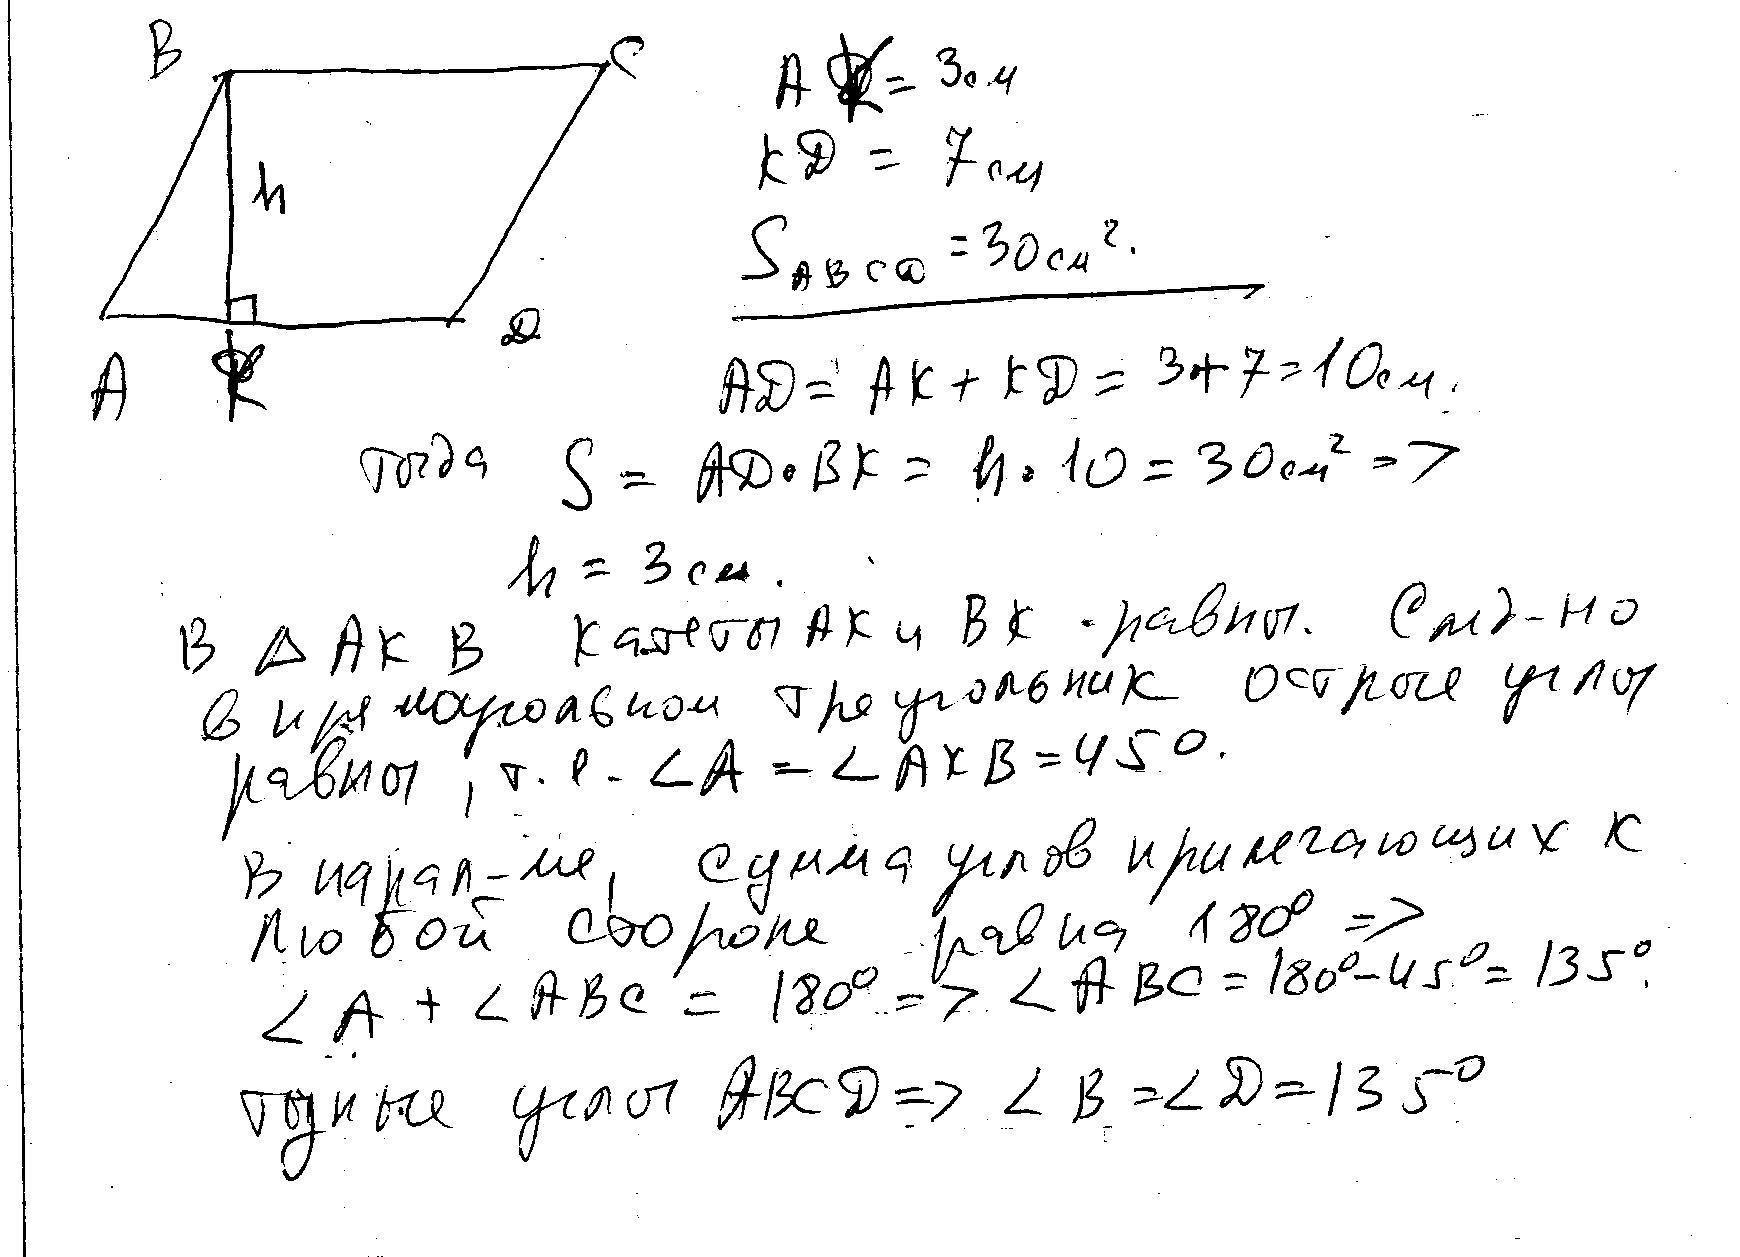 B C
h
A K D
AK = 3см
KD = 7см
S ABCD = 30см².
AD = AK + KD = 3+7=10см.
тогда S = AD·BK = h·10 = 30см² =>
h = 3см.
В △ AKB катеты AK и BK - равны. След-но
в прямоугольном треугольник острые углы
равны, т.е. ∠A = ∠AKB = 45°.
В парал-ме, сумма углов прилегающих к
любой стороне равна 180° =>
∠A + ∠ABC = 180° => ∠ABC = 180°-45° = 135°.
тупые углы ABCD => ∠B = ∠D = 135°